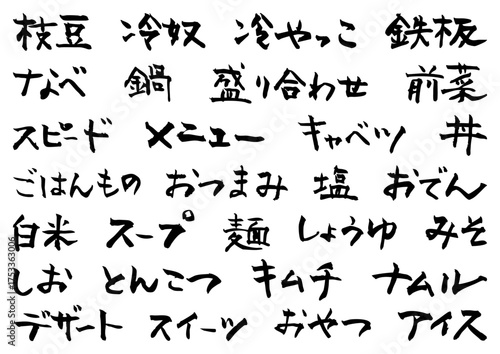 枝豆 冷奴 冷やっこ 鉄板
なべ 鍋 盛り合わせ 前菜
スピード メニュー キャベツ 丼
ごはんもの おつまみ 塩 おでん
白米 スープ 麺 しょうゆ みそ
しお とんこつ キムチ ナムル
デザート スイーツ おやつ アイス
Adobe Stock | #1753363006